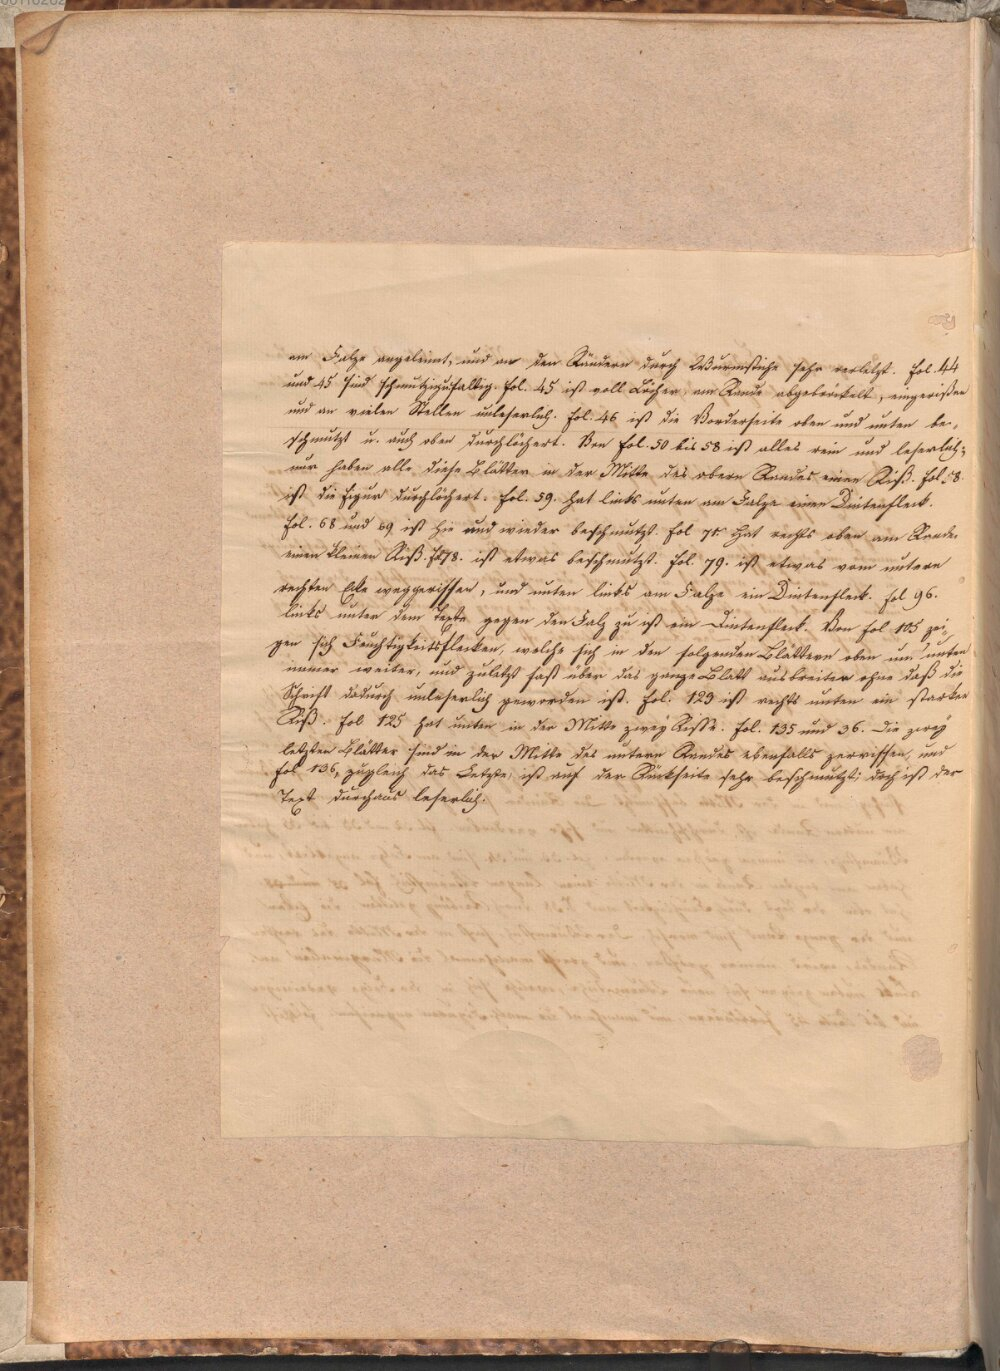 am Falze angeleimt, und an den Rändern durch Wurmstiche sehr verletzt. Fol. 44
und 45 sind schmutzig. Fol. 45 ist voll Löcher, am Rande abgebröckelt, eingerißen
und an vielen Stellen unleserlich. Fol. 46 ist die Vorderseite oben und unten be-
schmutzt u. auch oben durchlöchert. Von Fol. 50 bis 58 ist alles rein und leserlich;
nur haben alle diese Blätter in der Mitte des obern Randes einen Riß. Fol 58.
ist die Figur durchlöchert. Fol. 59. hat links unten am Falze einen Dintenfleck.
Fol. 68 und 69 ist hie und wieder beschmutzt. Fol 75 hat rechts oben am Rande
einen kleinen Riß. Fol 78. ist etwas beschmutzt. Fol. 79. ist etwas vom untern
rechten Ecke weggerissen, und unten links am Falze ein Dintenfleck. Fol 96.
links unter dem Texte gegen den Falz zu ist ein Dintenfleck. Von Fol 105 zei-
gen sich Feuchtigkeitsflecken, welche sich in den folgenden Blättern oben und unten
immer weiter, und zuletzt fast über das ganze Blatt ausbreiten ohne daß die
Schrift dadurch unleserlich geworden ist. Fol. 123 ist rechts unten ein starker
Riß. Fol 125 hat unten in der Mitte zwey Risse. Fol. 135 und 36. die zwey
letzten Blätter sind in der Mitte des untern Randes ebenfalls zerrissen, und
Fol 136, zugleich das Letzte, ist auf der Rückseite sehr beschmutzt; doch ist der
Text durchaus leserlich.